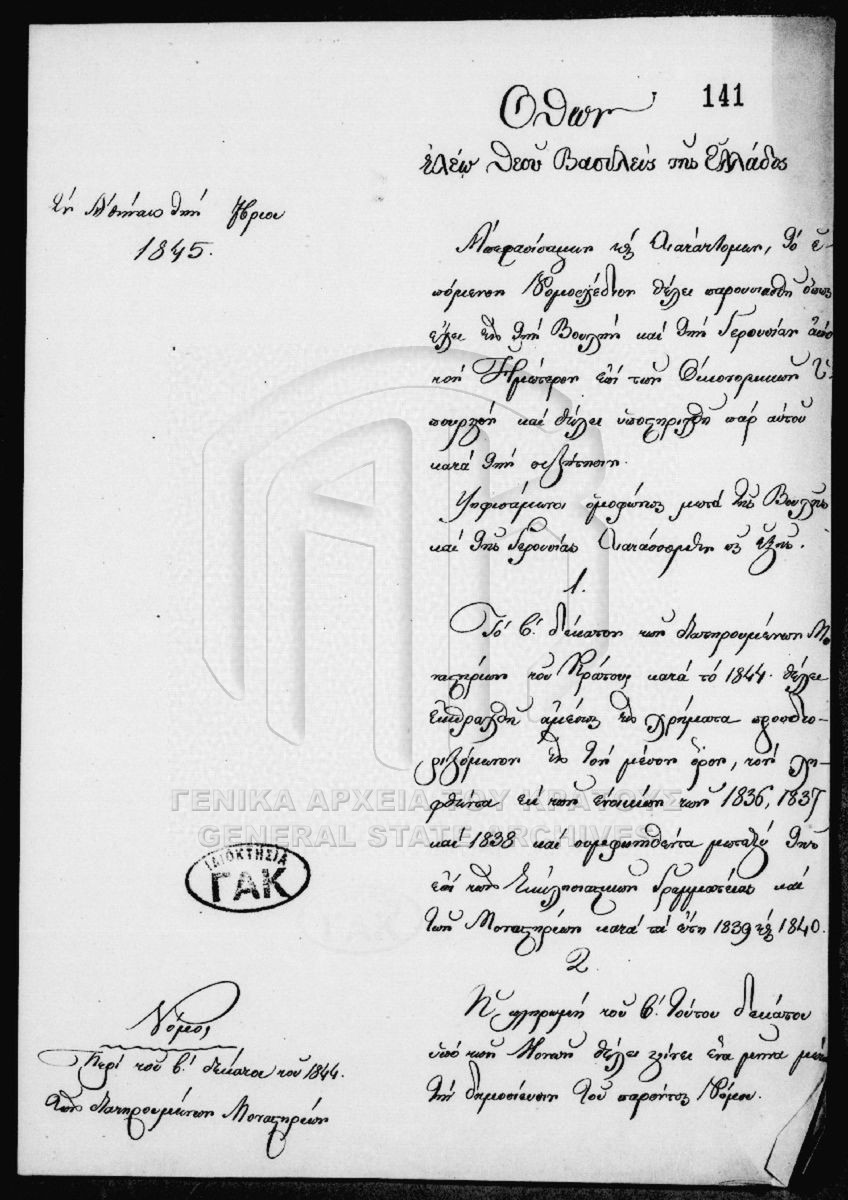 141
Ὄθων
ἐλέῳ Θεοῦ Βασιλεὺς τῆς Ἑλλάδος
Ἐν Ἀθήναις τὴν
1845.
Ἀπεφασίσαμεν καὶ Διατάττομεν, τὸ ἑ-
πόμενον Νομοσχέδιον θέλει παρουσιασθῆ
εἰς τὴν Βουλὴν καὶ τὴν Γερουσίαν ἀπὸ
τὸν Ἡμέτερον ἐπὶ τῶν Οἰκονομικῶν Ὑ-
πουργὸν καὶ θέλει ὑποστηριχθῆ παρ' αὐτοῦ
κατὰ τὴν συζήτησιν.
Ψηφισάμενοι ὁμοφώνως μετὰ τῆς Βουλῆς
καὶ τῆς Γερουσίας Διατάσσομεν τὰ ἑξῆς.
1.
Τὸ β! δέκατον τῶν διατηρουμένων Μο
ναστηρίων τοῦ Κράτους κατὰ τὸ 1844. θέλει
εἰσπραχθῆ ἀμέσως εἰς χρήματα προσδιο-
ριζόμενον εἰς τὸν μέσον ὅρον, τὸν λη-
φθέντα ἐκ τῶν ἐνοικίων τῶν 1836, 1837
καὶ 1838 καὶ συμφωνηθέντα μεταξὺ τῆς
ἐπὶ τῶν Ἐκκλησιαστικῶν Γραμματείας καὶ
τῶν Μοναστηρίων κατὰ τὰ ἔτη 1839 καὶ 1840.
2.
Ἡ πληρωμὴ τοῦ β! τούτου δεκάτου
ὑπὸ τῶν Μονῶν θέλει γίνει ἕνα μῆνα μετὰ
τὴν δημοσίευσιν τοῦ παρόντος Νόμου.
Νόμος
Περὶ τοῦ β! δεκάτου τοῦ 1844.
τῶν διατηρουμένων Μοναστηρίων
ΙΔΙΟΚΤΗΣΙΑ
ΓΑΚ
ΓΕΝΙΚΑ ΑΡΧΕΙΑ ΤΟΥ ΚΡΑΤΟΥΣ
GENERAL STATE ARCHIVES